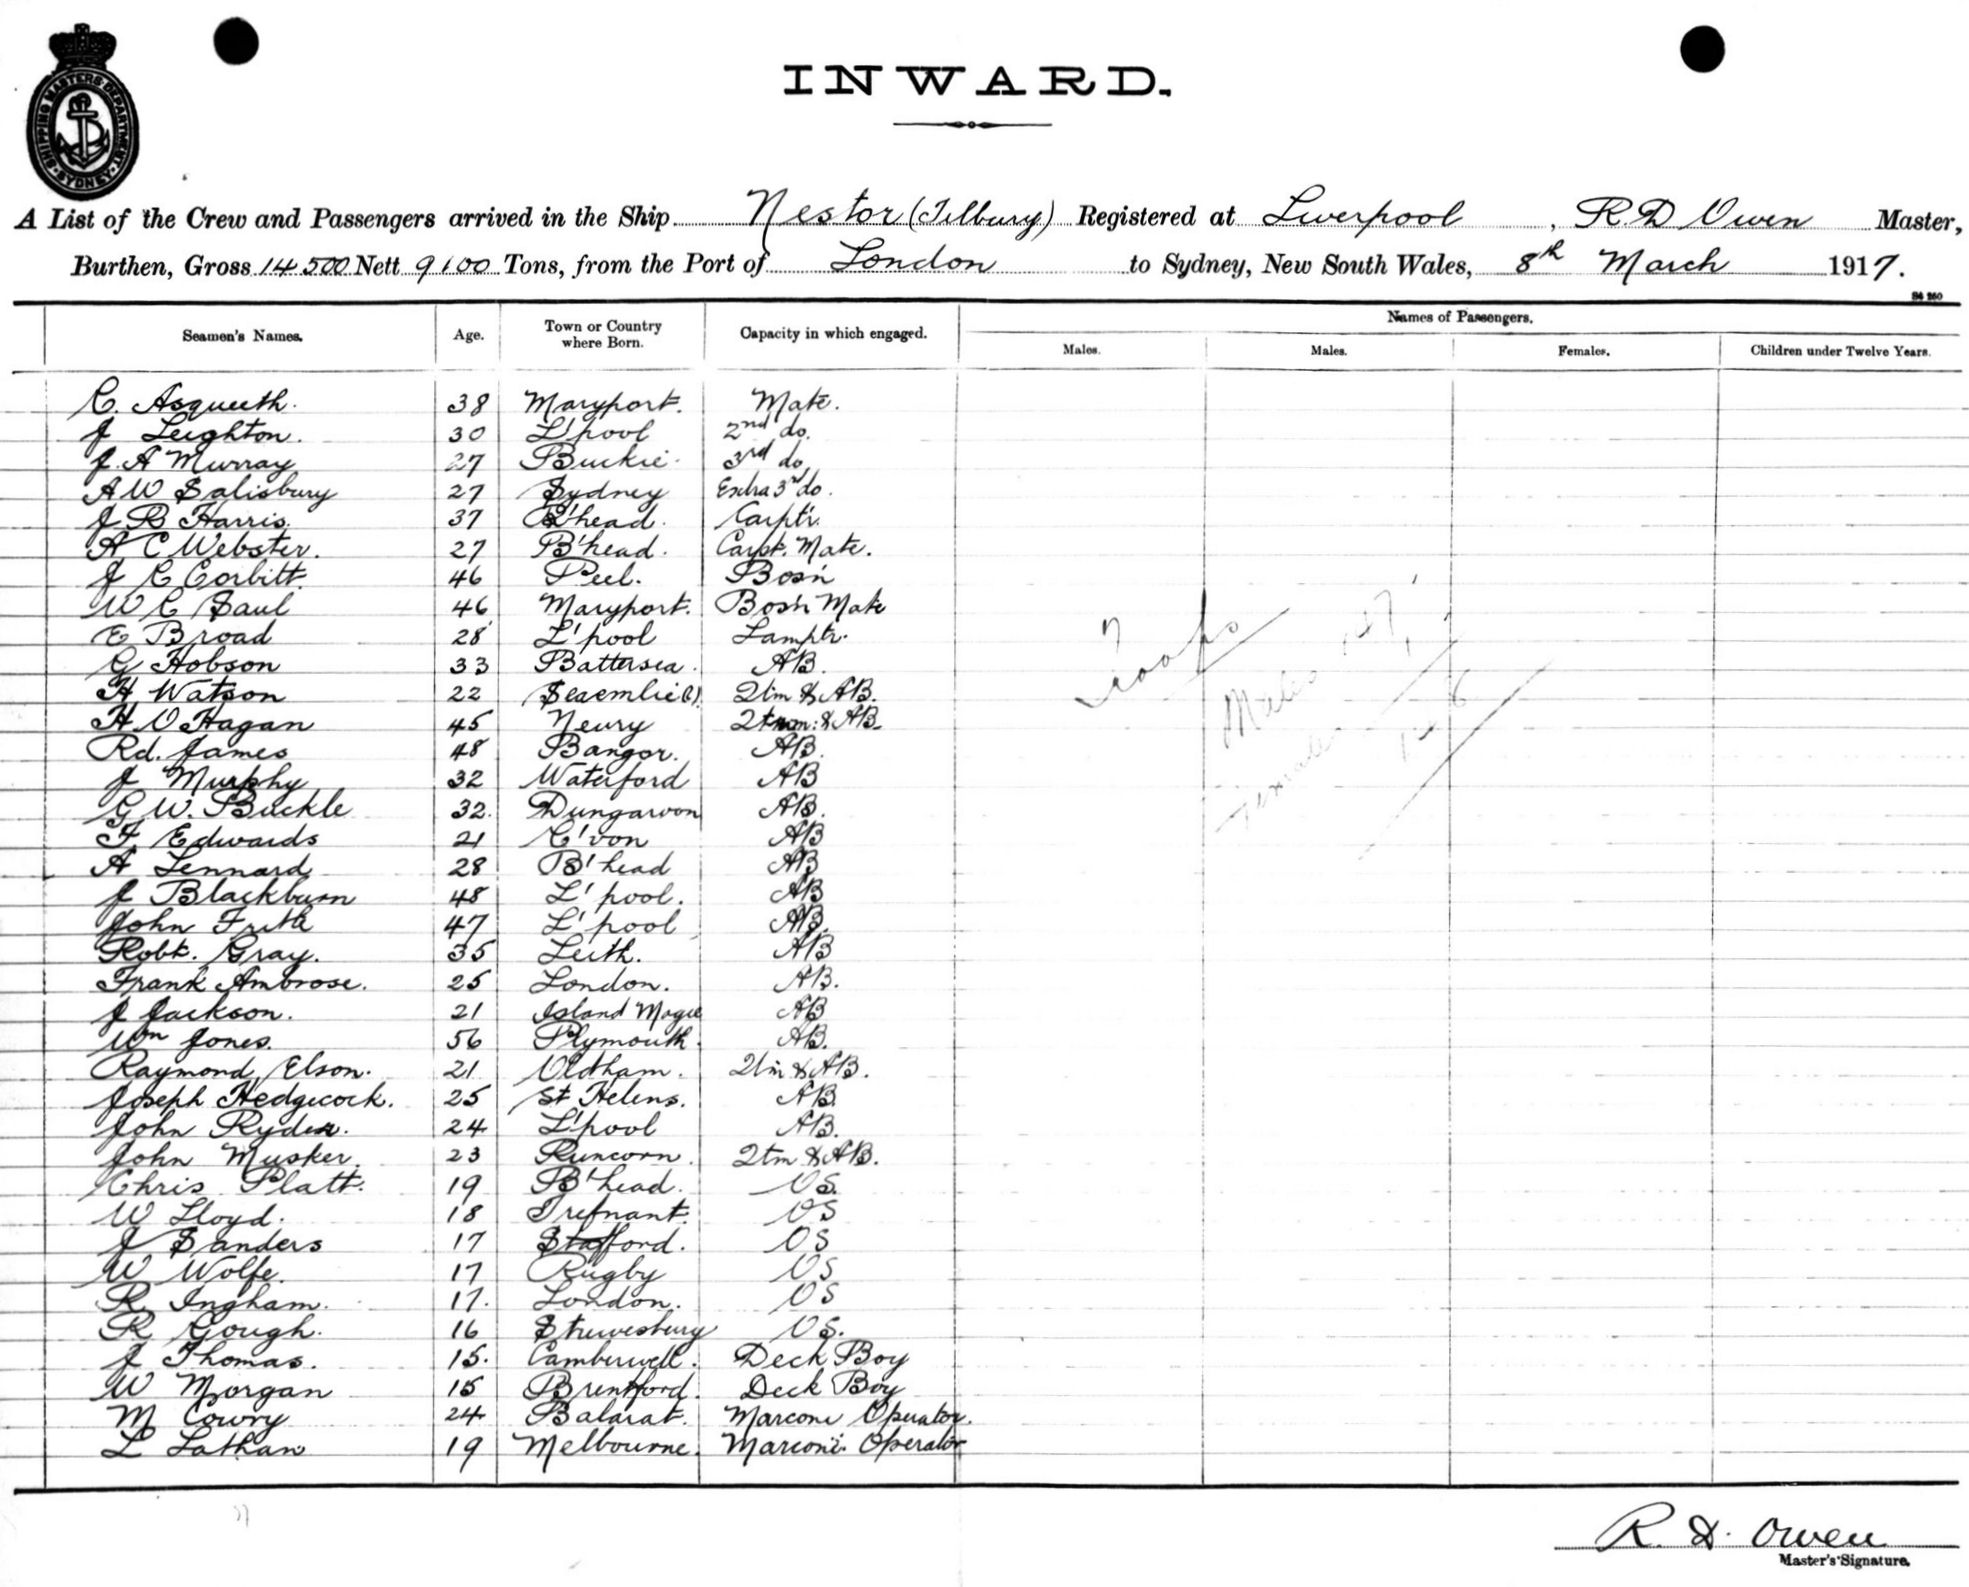 SHIPPING MASTERS DEPARTMENT SYDNEY
INWARD.
A List of the Crew and Passengers arrived in the Ship Nestor (Tilbury) Registered at Liverpool, R D Owen Master,
Burthen, Gross 14500 Nett 9100 Tons, from the Port of London to Sydney, New South Wales, 8th March 1917.
Seamen's Names. Age. Town or Country where Born. Capacity in which engaged. Names of Passengers.
Males. Males. Females. Children under Twelve Years.
C. Asqueeth. 38 Maryport. Mate.
J Leighton. 30 L'pool 2nd do.
J. A Murray 27 Buckie. 3rd do.
A W Salisbury 27 Sydney Extra 3rd do.
J B Harris. 37 B'head. Carptr.
A C Webster. 27 B'head. Carpt. Mate.
J C Corbitt. 46 Peel. Bosn
W C Saul 46 Maryport. Bosn Mate
E Broad 28 L'pool Lamptr.
G Hobson 33 Battersea. AB.
H Watson 22 Qtm & AB.
H O Hagan 45 Neury & AB.
Rd. James 48 Bangor. AB.
J Murphy 32 Waterford AB
G W. Buckle 32. Dungarvon AB.
F. Edwards 21 C'von AB
A Lennard 28 B'head AB
J Blackburn 48 L'pool. AB
John Frith 47 L'pool AB.
Robt. Gray. 35 Leith. AB
Frank Ambrose. 25 London. AB.
J Jackson. 21 Island Magee AB
Wm Jones. 56 Plymouth. AB.
Raymond Elson. 21 Oldham. Qtm & AB.
Joseph Hedgecock. 25 St Helens. AB.
John Ryder. 24 L'pool AB.
John Musker 23 Runcorn. Qtm & AB.
Chris Platt. 19 B'head. OS.
W Lloyd. 18 Trefnant. OS
J Sanders 17 Stafford. OS
W Wolfe. 17 Rugby OS
R Ingham. 17. London. OS
R Gough. 16 Shrewesbury OS.
J Thomas. 15. Camberwell. Deck Boy
W Morgan 15 Brentford. Deck Boy
M Cowry 24 Balarat. Marconi Operator.
L Lathan 19 Melbourne. Marconi Operator
Troops
Males 147
Females
R. D. Owen
Master's Signature.